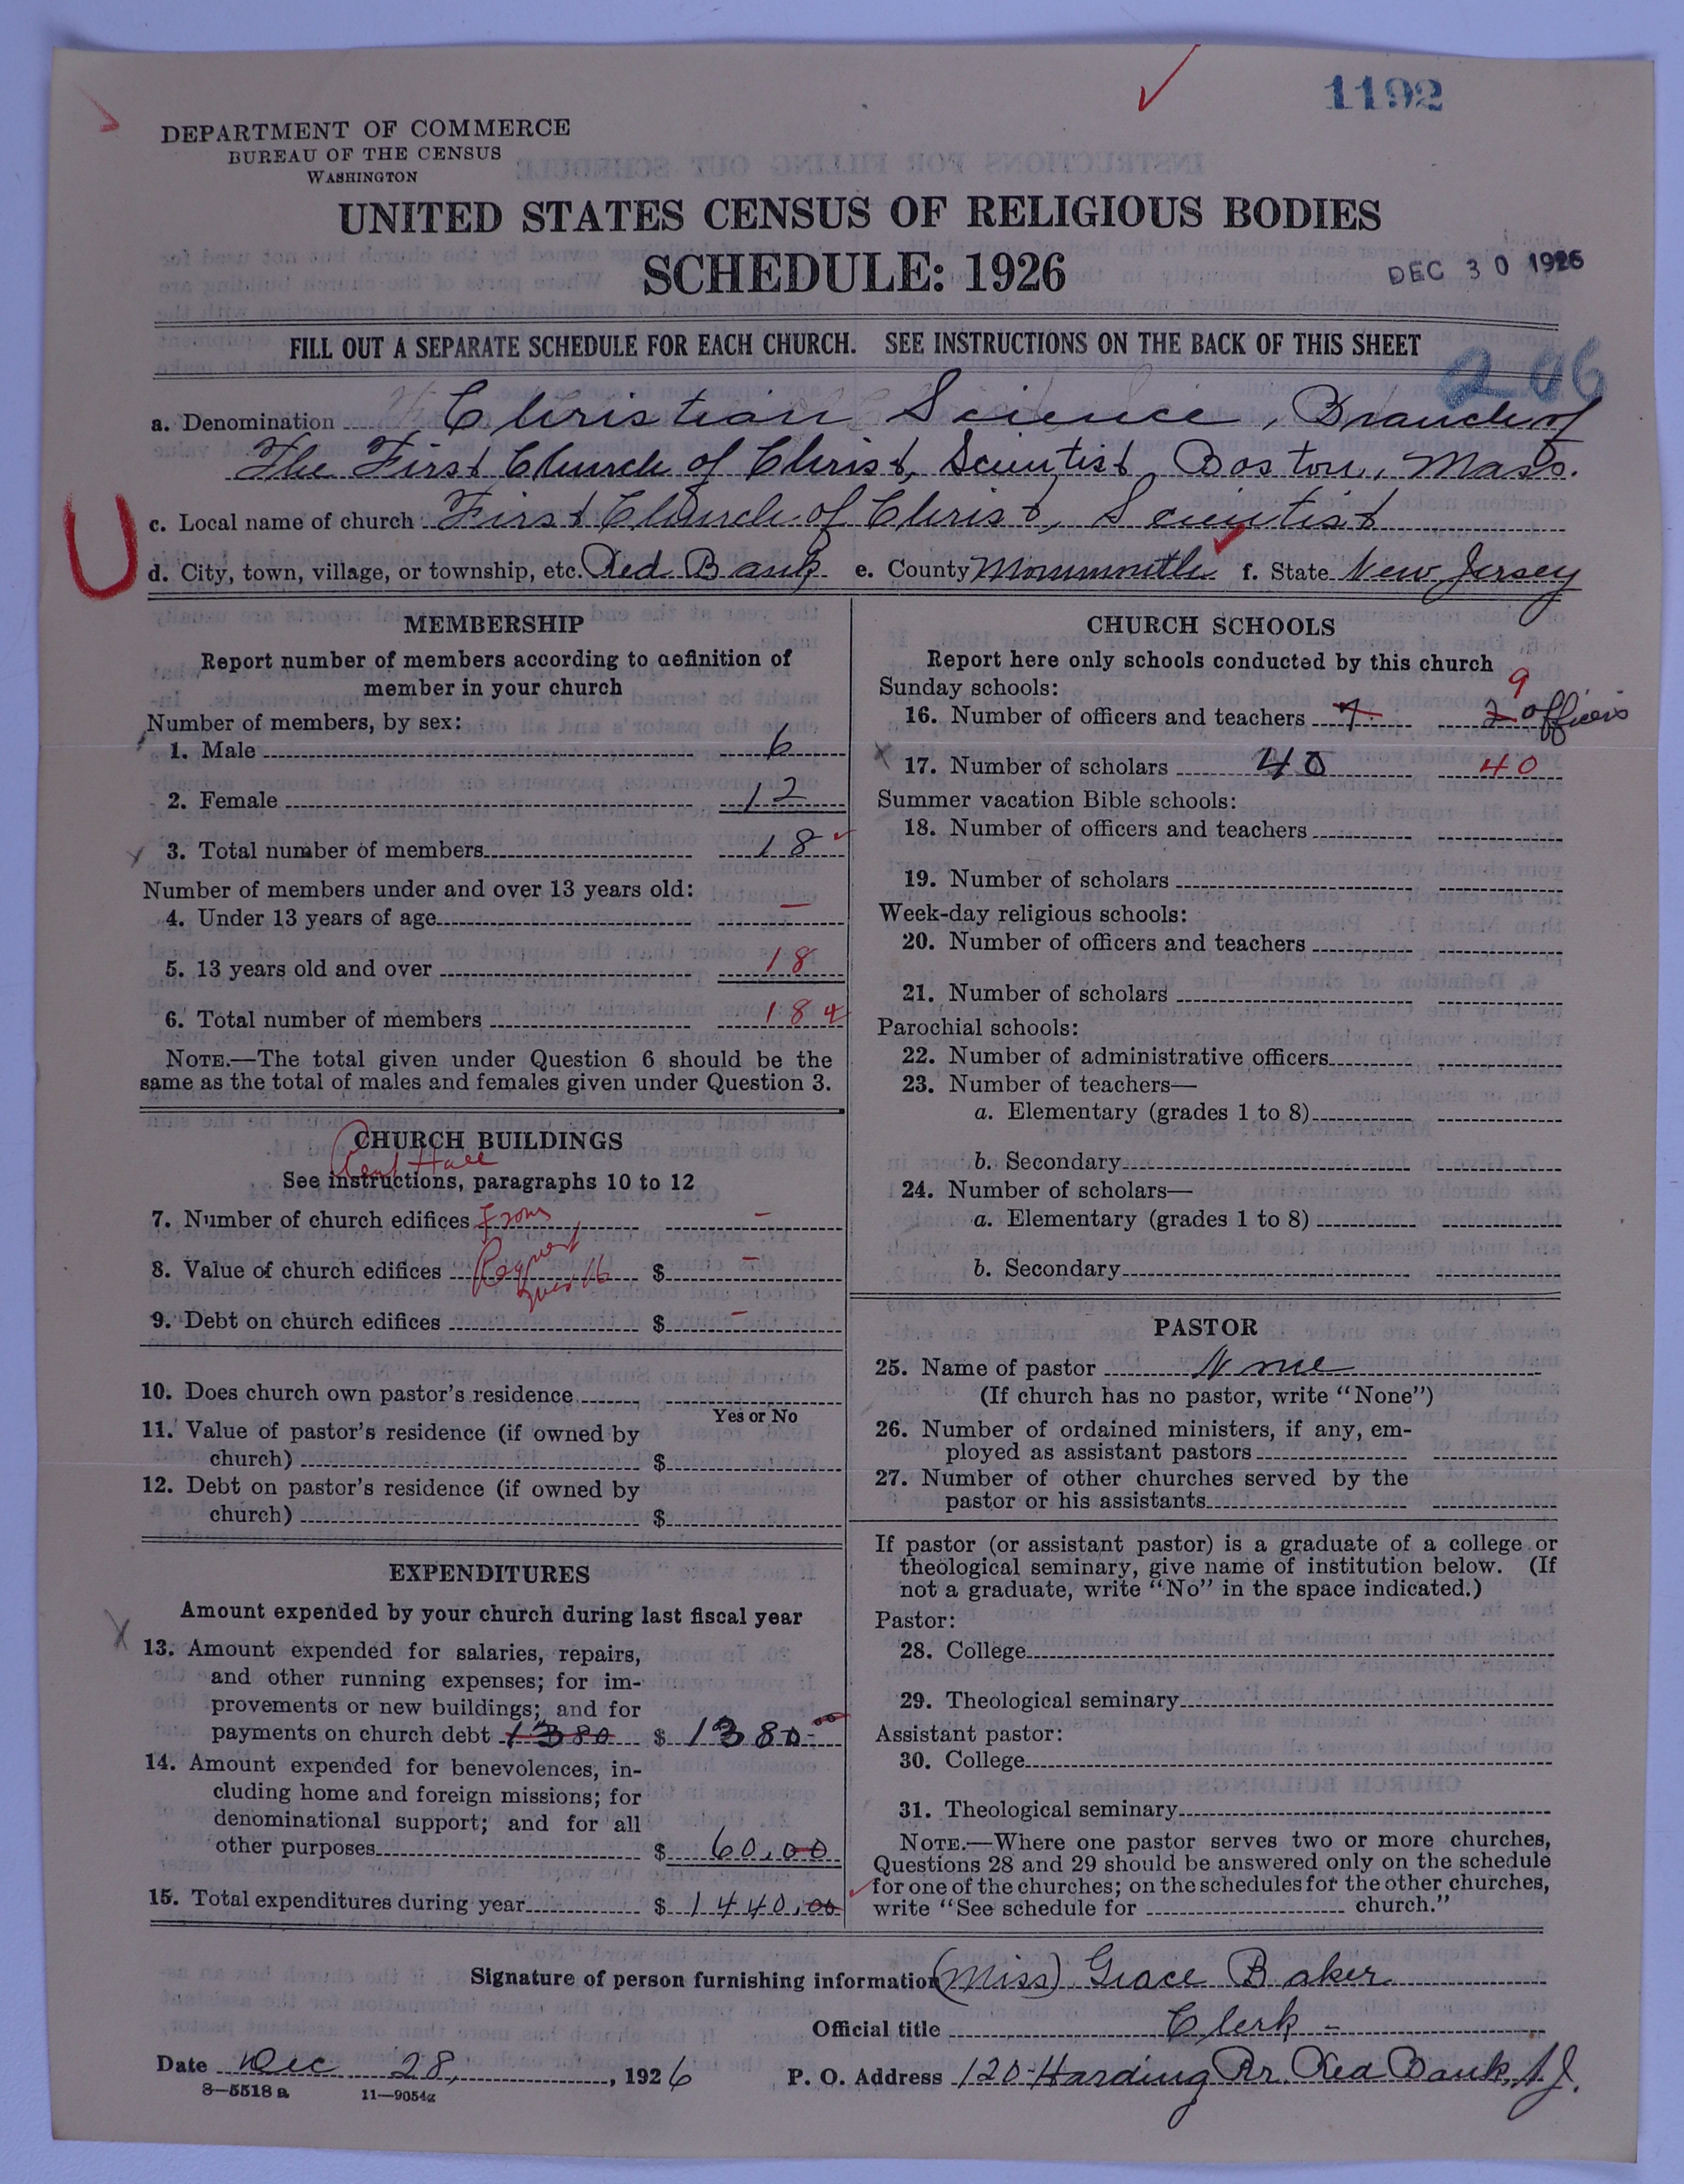 1192
DEPARTMENT OF COMMERCE
BUREAU OF THE CENSUS
WASHINGTON
UNITED STATES CENSUS OF RELIGIOUS BODIES
SCHEDULE: 1926
DEC 30 1926
FILL OUT A SEPARATE SCHEDULE FOR EACH CHURCH. SEE INSTRUCTIONS ON THE BACK OF THIS SHEET
206
a. Denomination Christian Science, Branch of
The First Church of Christ, Scientist, Boston, Mass.
c. Local name of church First Church of Christ, Scientist
U
d. City, town, village, or township, etc. Red Bank e. County Monmouth f. State New Jersey
MEMBERSHIP
Report number of members according to definition of
member in your church
Number of members, by sex:
1. Male 6
2. Female 12
3. Total number of members 18
Number of members under and over 13 years old:
4. Under 13 years of age —
5. 13 years old and over 18
6. Total number of members 18
NOTE.—The total given under Question 6 should be the
same as the total of males and females given under Question 3.
CHURCH BUILDINGS
Rent Hall
See instructions, paragraphs 10 to 12
7. Number of church edifices From –
8. Value of church edifices $ –
9. Debt on church edifices $ –
10. Does church own pastor's residence
Yes or No
11. Value of pastor's residence (if owned by
church) $
12. Debt on pastor's residence (if owned by
church) $
EXPENDITURES
Amount expended by your church during last fiscal year
13. Amount expended for salaries, repairs,
and other running expenses; for im-
provements or new buildings; and for
payments on church debt 1380 $ 1380.00
14. Amount expended for benevolences, in-
cluding home and foreign missions; for
denominational support; and for all
other purposes $ 60.00
15. Total expenditures during year $ 1440.00
CHURCH SCHOOLS
Report here only schools conducted by this church
Sunday schools:
9
16. Number of officers and teachers 7 2 officers
17. Number of scholars 40 40
Summer vacation Bible schools:
18. Number of officers and teachers
19. Number of scholars
Week-day religious schools:
20. Number of officers and teachers
21. Number of scholars
Parochial schools:
22. Number of administrative officers
23. Number of teachers—
a. Elementary (grades 1 to 8)
b. Secondary
24. Number of scholars—
a. Elementary (grades 1 to 8)
b. Secondary
PASTOR
25. Name of pastor None
(If church has no pastor, write "None")
26. Number of ordained ministers, if any, em-
ployed as assistant pastors
27. Number of other churches served by the
pastor or his assistants
If pastor (or assistant pastor) is a graduate of a college or
theological seminary, give name of institution below. (If
not a graduate, write "No" in the space indicated.)
Pastor:
28. College
29. Theological seminary
Assistant pastor:
30. College
31. Theological seminary
NOTE.—Where one pastor serves two or more churches,
Questions 28 and 29 should be answered only on the schedule
for one of the churches; on the schedules for the other churches,
write "See schedule for church."
Signature of person furnishing information (Miss) Grace Baker
Official title Clerk -
Date Dec 28, 1926 P. O. Address 120 Harding Rr. Red Bank, N.J.
8—5518 a 11—9054a